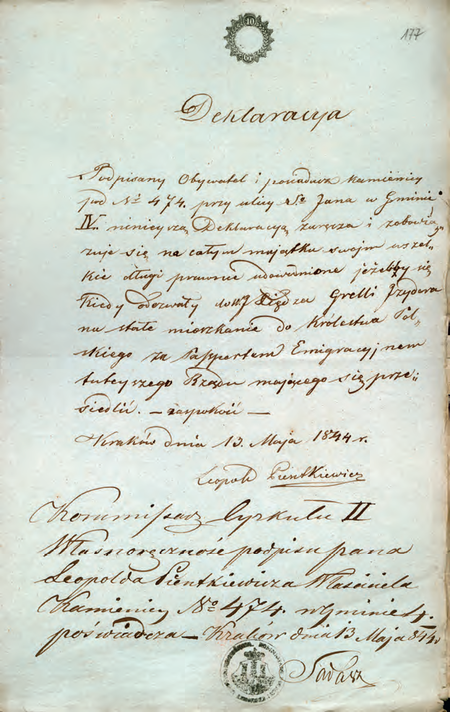 177
Deklaracyja
Podpisany Obywatel i posiadacz kamienicy
pod Nº 474. przy ulicy Sº Jana w Gminie
IV. niniejszą Deklaracyą zaręcza i zobowią
zuje się na całym majątku swojm wszel
kie długi prawnie udowodnione jeżeliby się
kiedy odezwały do Xiędza Grelli Izydora
na stałe mieszkanie do Królestwa Pol„
skiego za Passportem Emigracyjnem
tuteyszego Rządu mającego się prze„
siedlić. — zaspokoić —
Kraków dnia 13. Maja 1844 r.
Leopold Pientkiewicz
Kommissarz Cyrkułu II
Własnoręczność podpisu pana
Leopolda Pientkiewicza Właściciela
Kamienicy Nº 474. w Gminie IV.
poświadcza — Kraków dnia 13 Maja 844 r